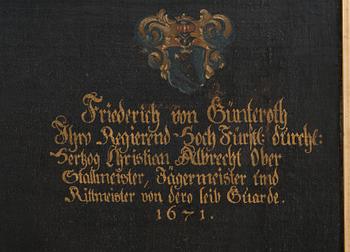 Friederich von Günteroth
Ihro Regierend Hoch Fürstl: durchl:
Hertzog Christian Albrecht Ober
Stallmeister, Jägermeister und
Rittmeister von dero leib Guarde.
1671.